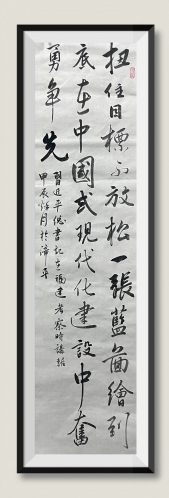 扭住目標不放松一張藍圖繪到
底在中國式現代化建設中奮
勇爭先
習近平總書記在福建考察時講話
甲辰 月於漳平